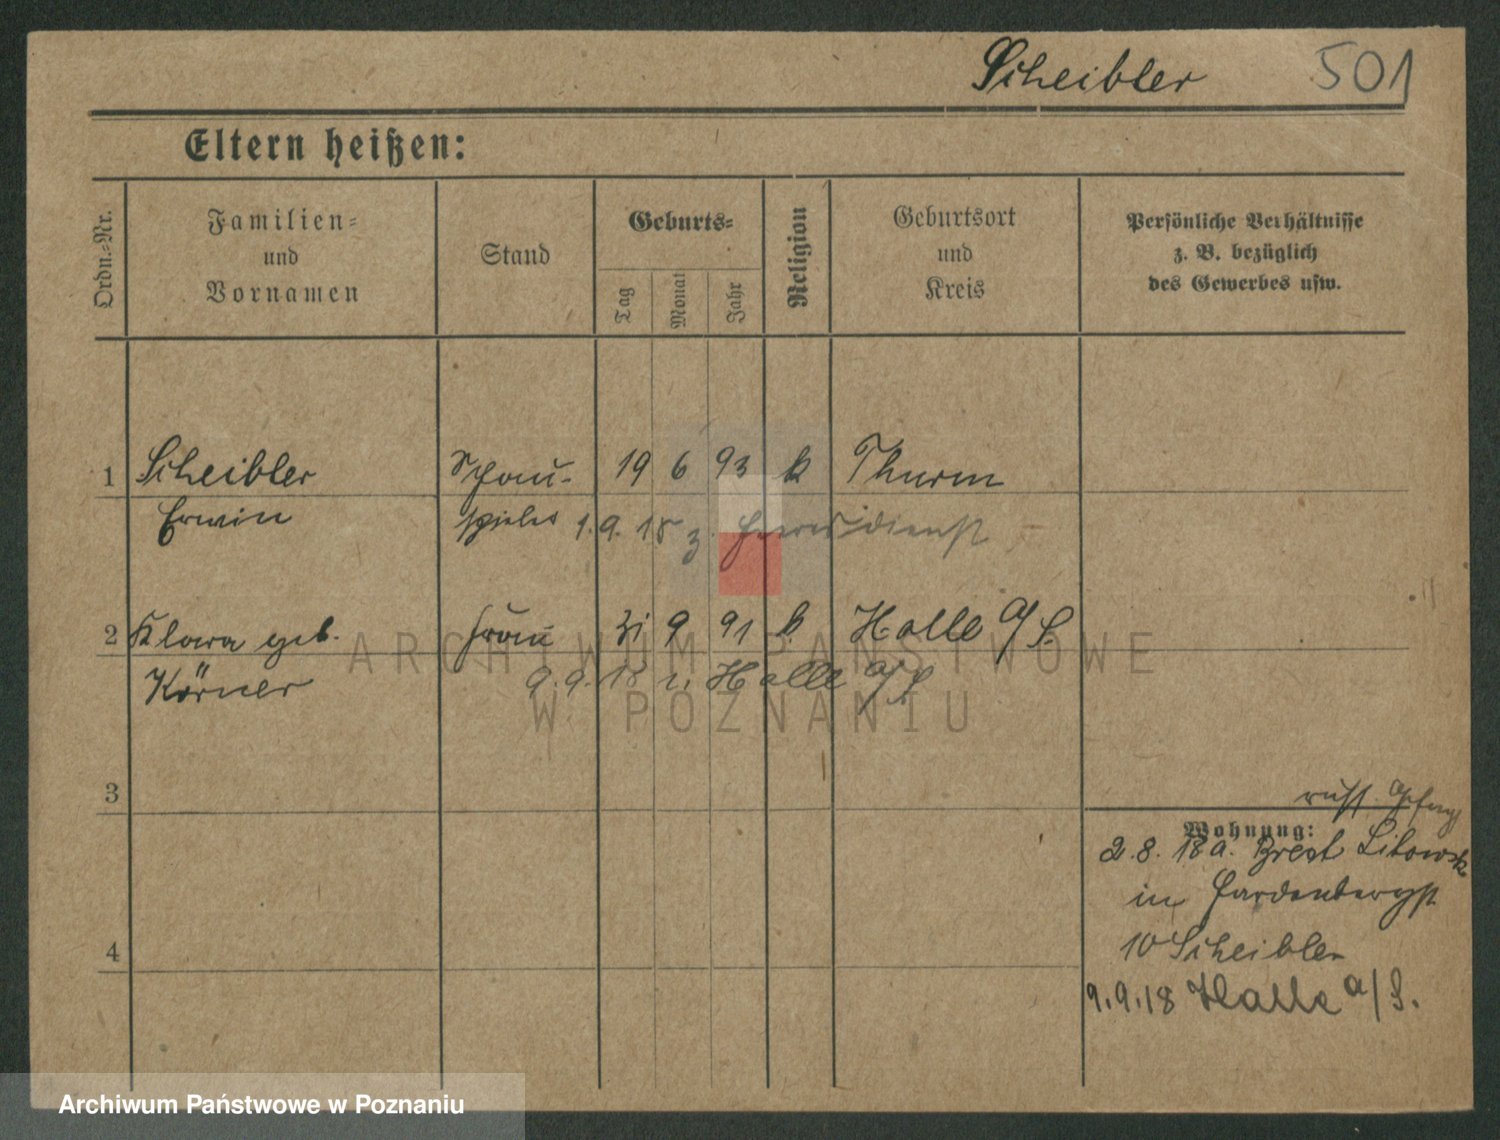 Scheibler 501
Eltern heißen:
Ordn.-Nr.
Familien-
und
Vornamen
Stand
Geburts-
Tag
Monat
Jahr
Religion
Geburtsort
und
Kreis
Persönliche Verhältnisse
z. B. bezüglich
des Gewerbes usw.
1 Scheibler Schau- 19 6 93 k Thurm
Erwin spieler 1.9.18 z. Heeresdienst
2 Klara geb. Frau 9 91 k Halle a/S.
Körner 9.9.18 n. Halle a/S
3
russ.
Wohnung:
2.8.18 a. Brest Litowsk
in Hardenbergst
10 Scheibler
4
9.9.18 Halle a/S.
ARCHIWUM PAŃSTWOWE
W POZNANIU
Archiwum Państwowe w Poznaniu